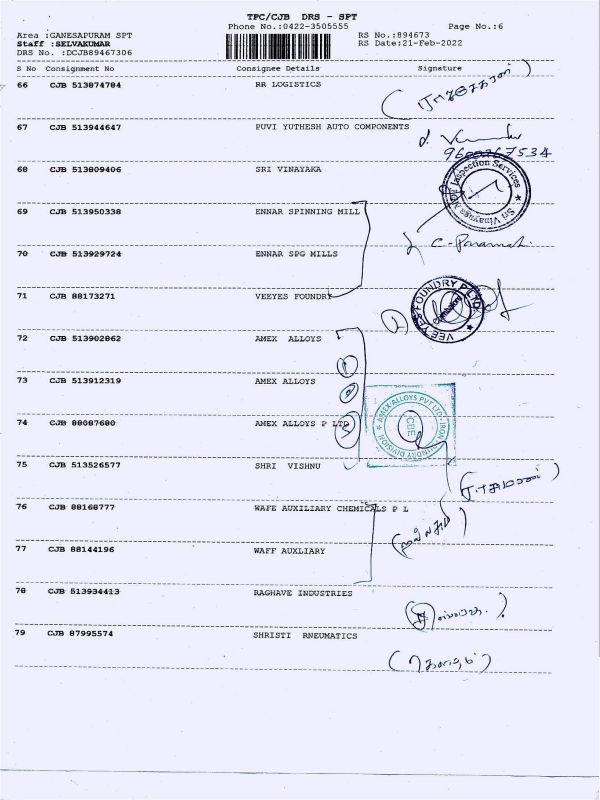 TPC/CJB DRS - SPT
Phone No.:0422-3505555 Page No.:6
Area :GANESAPURAM SPT RS No.:894673
Staff :SELVAKUMAR RS Date:21-Feb-2022
DRS No. :DCJB89467306
S No Consignment No Consignee Details Signature
66 CJB 513874784 RR LOGISTICS
67 CJB 513944647 PUVI YUTHESH AUTO COMPONENTS
9600267534
68 CJB 513809406 SRI VINAYAKA
Sri Vinayaga NDT Inspection Services
69 CJB 513950338 ENNAR SPINNING MILL
70 CJB 513929724 ENNAR SPG MILLS
71 CJB 88173271 VEEYES FOUNDRY
VEE YES FOUNDRY P LTD
72 CJB 513902862 AMEX ALLOYS
1
73 CJB 513912319 AMEX ALLOYS
2
74 CJB 88087680 AMEX ALLOYS P LTD
3
AMEX ALLOYS PVT LTD. IRON FOUNDRY DIVISION
CBE
75 CJB 513526577 SHRI VISHNU
76 CJB 88168777 WAFE AUXILIARY CHEMICALS P L
77 CJB 88144196 WAFF AUXLIARY
78 CJB 513934413 RAGHAVE INDUSTRIES
79 CJB 87995574 SHRISTI RNEUMATICS